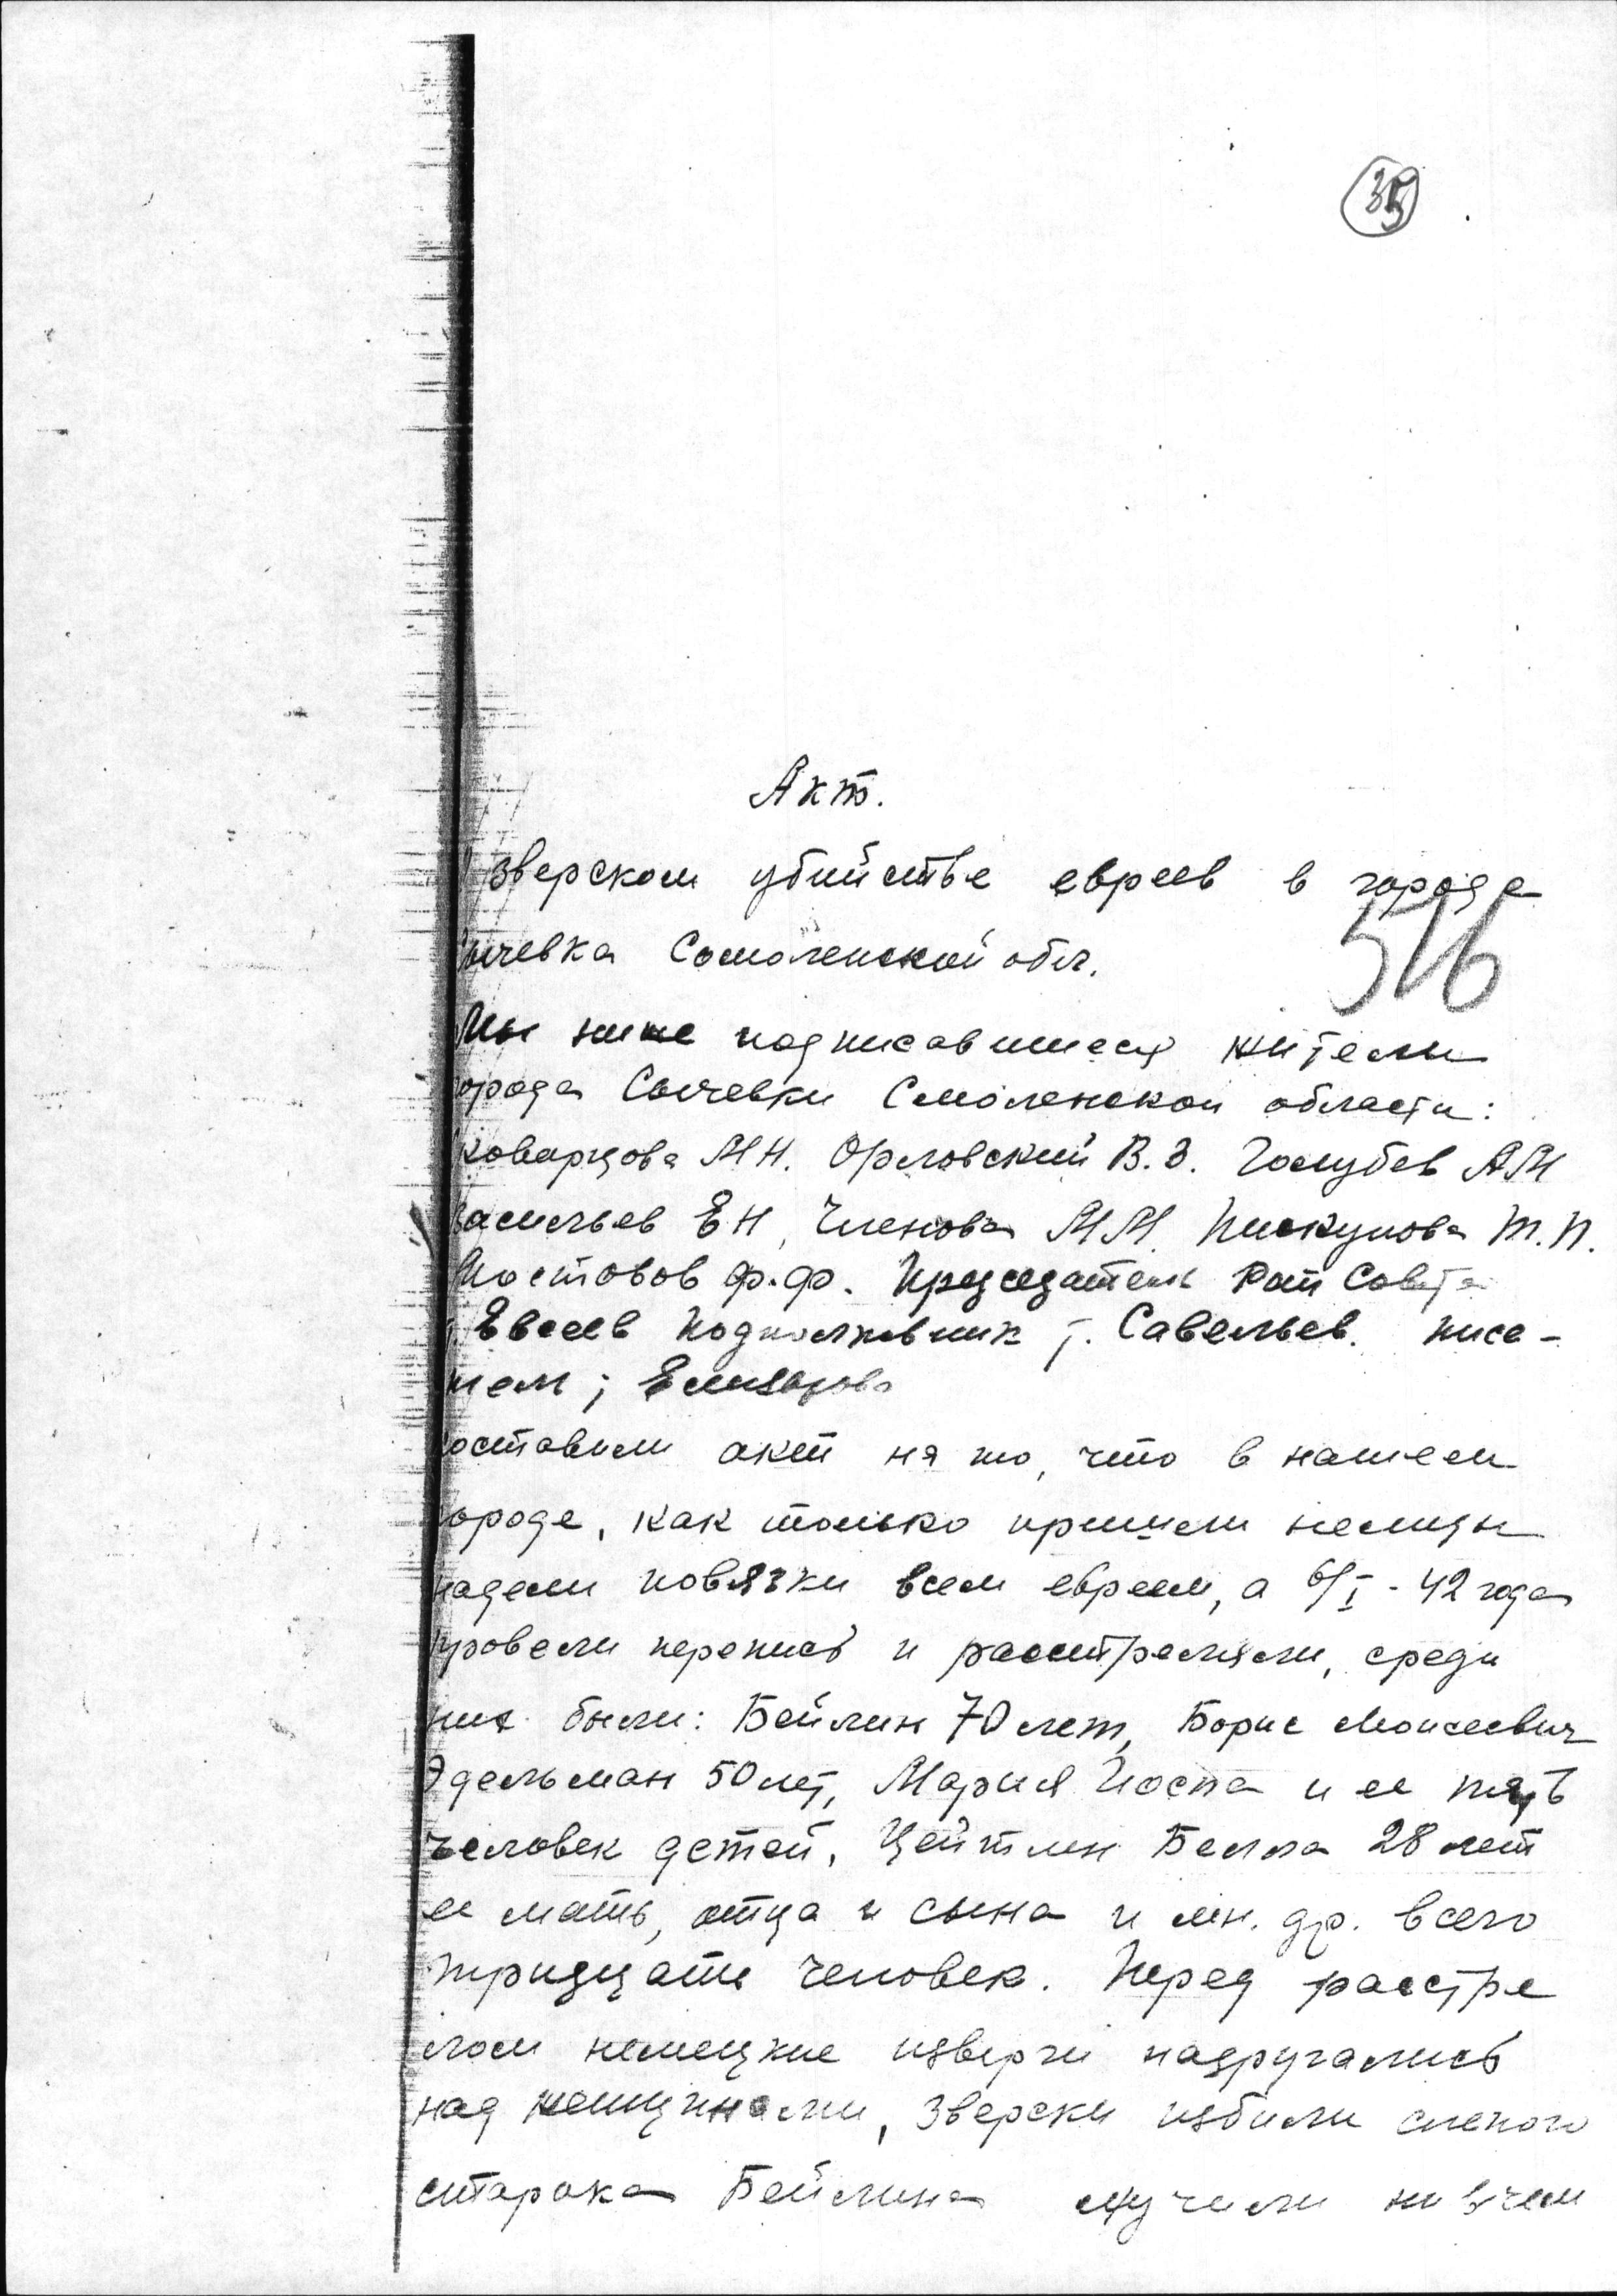 35
Акт.
О зверском убийстве евреев в городе
Сычевка Смоленской обл.
516
Мы ниже подписавшиеся жители
города Сычевки Смоленской области:
Коварцова М.Н. Орловский В.З. Голубев А.М
Васильев Е.Н, Членова М.М. Пискунова Т.П.
Мостовов Ф.Ф. Председатель Рай Совета
т. Евсеев Подполковник т. Савельев. писа-
тель т
составили акт на то, что в нашем
городе, как только пришли немцы
надели повязки всем евреем, а 6/I - 42 года
провели перепись и расстреляли, среди
них были: Бейлин 70 лет, Борис Моисеевич
Эдельман 50 лет, Мария Иоспа и ее пять
человек детей, Цейтлин Белла 28 лет
ее мать, отца и сына и мн. др. всего
тридцать человек. Перед расстре
лом немецкие изверги надругались
над женщинами, зверски избили слепого
старика Бейлина мучили ни в чем